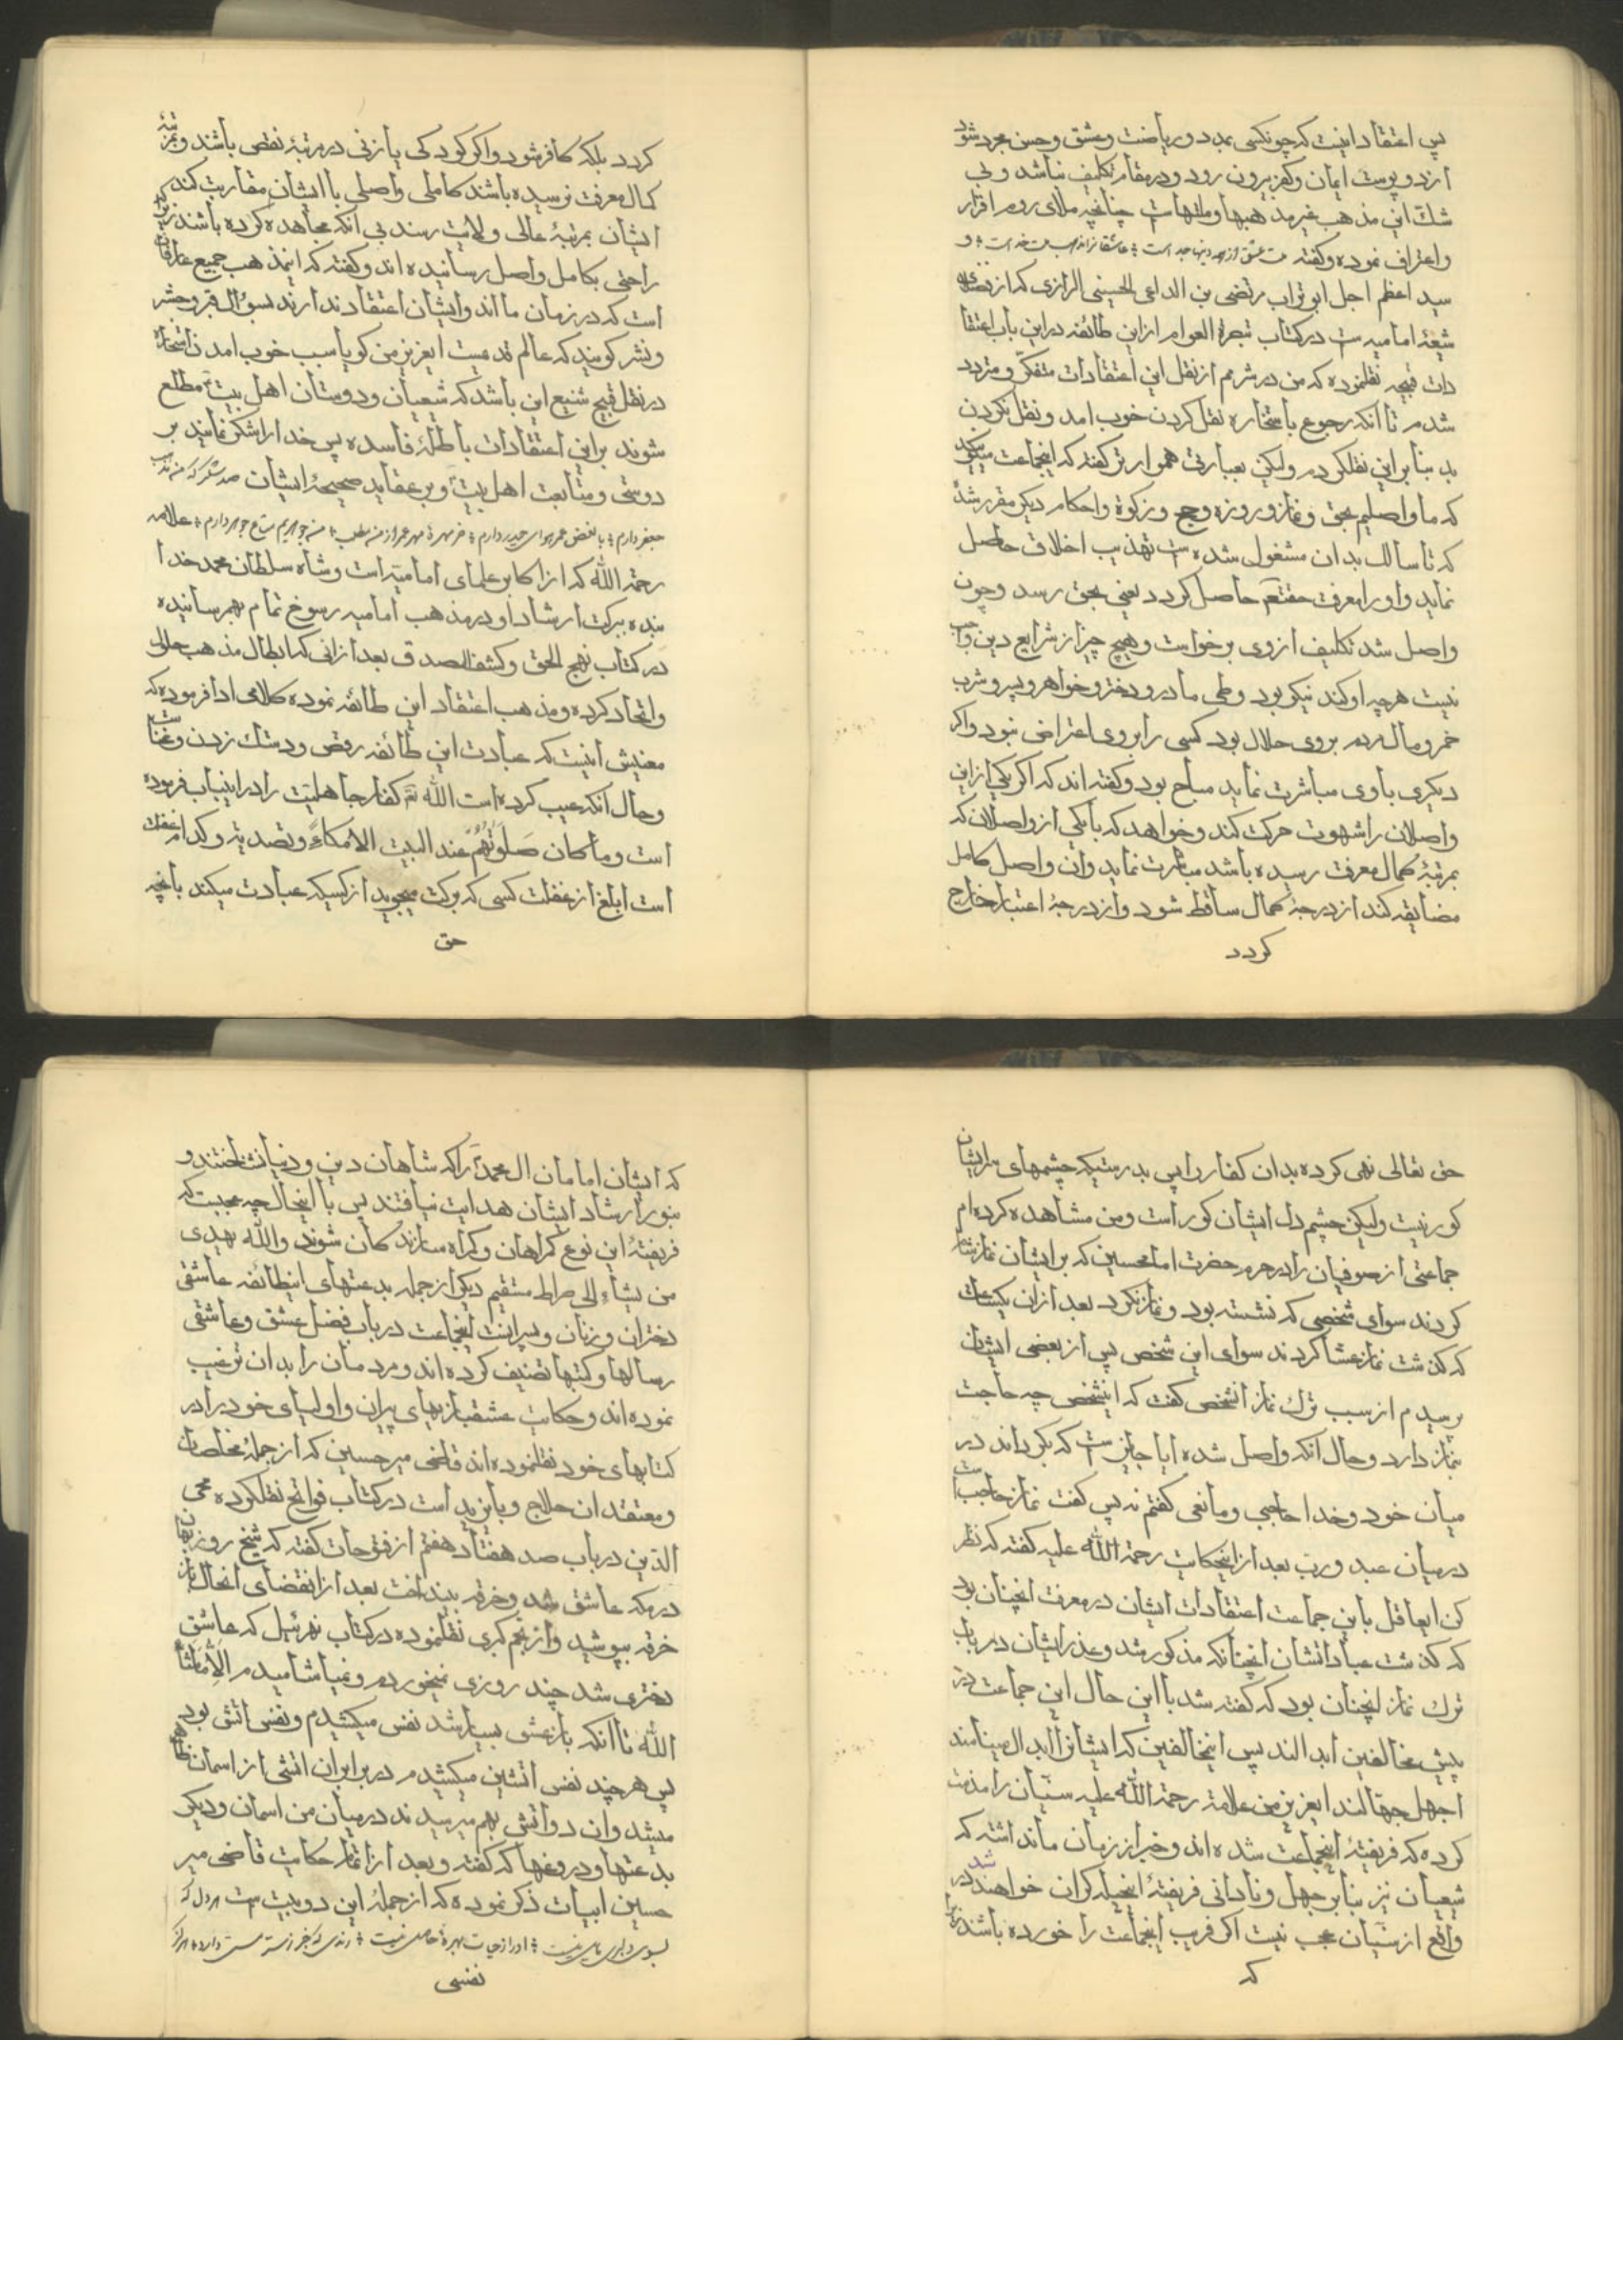 پس اعتقاد اینست که چون کسی بمدد و ریاضت و عشق و حسن مجرد شود
از دو پوست ایمان و کفر بیرون رود و در مقام تکلیف نباشد و بی
شک این مذهب غیر مذهبها و ملتهاست چنانچه ملای روم اقرار
و اعتراف نموده و گفته ملت عشق از همه دینها جداست عاشقانرا مذهب و ملت خداست و
سید اعظم اجل ابو تراب مرتضی بن الداعی الحسینی الرازی که از
شیعهٔ امامیه است در کتاب تبصرة العوام از این طائفه در این باب اعتقا
دات قبیحه نقلنموده که من در شرمم از نقل این اعتقادات متفکر و متردد
شدم تا انکه رجوع باستخاره نقل کردن خوب امد و نقل نکردن
بد بنا بر این نقلکردم ولیکن بعبارتی هموارتر گفته که اینجماعت میگویند
که ما واصلیم بحق و نماز و روزه و حج و زکوة و احکام دیگر مقرر شده
که تا سالک بدان مشغول شده است تهذیب اخلاق حاصل
نماید و او را معرفت حقتعم حاصل گردد یعنی بحق رسد و چون
واصل شد تکلیف از وی برخواست و هیچ چیز از شرایع دین واجب
نیست هرچه او کند نیکو بود وطی مادر و دختر و خواهر و پسر و شرب
خمر و مال مردم بروی حلال بود کسی را بروی اعتراض نبود و اگر
دیگری با وی مباشرت نماید مباح بود و گفته اند که اگر یکی از این
واصلان را شهوت حرکت کند و خواهد که با یکی از واصلان که
بمرتبهٔ کمال معرفت رسیده باشد مباشرت نماید و ان واصل کامل
مضایقه کند از درجهٔ کمال ساقط شود و از درجهٔ اعتبار خارج
گردد
گردد بلکه کافر شود و اگر کودکی یا زنی در مرتبهٔ نقص باشند و بمرتبهٔ
کمال معرفت نرسیده باشند کاملی واصلی با ایشان مقاربت کند
ایشان بمرتبهٔ عالی ولایت رسند بی انکه مجاهده کرده باشند زیرا که
راحتی بکامل واصل رسانیده اند و گفته که اینمذهب جمیع عارفان
است که در زمان ما اند و ایشان اعتقاد ندارند بسؤال قبر و حشر
و نشر گویند که عالم قدیمست ایعزیز من گویا سبب خوب امدن استخاره
در نقل قبیح شنیع این باشد که شیعیان و دوستان اهل بیت مطلع
شوند بر این اعتقادات باطلهٔ فاسده پس خدا را شکر نمایند بر
دوستی و متابعت اهل بیت و بر عقاید صحیحهٔ ایشان صد شکر که من مذهب
جعفر دارم با بغض عمر هوای حیدر دارم خر مهرهٔ مهر عمر از من مطلب من جوهریم متاع جوهر دارم علامه
رحمة الله که از اکابر علمای امامیه است و شاه سلطان محمد خدا
بنده ببرکت ارشاد او در مذهب امامیه رسوخ تمام بهمرسانیده
در کتاب نهج الحق و کشف الصدق بعد از انی که ابطال مذهب حلول
و اتحاد کرده و مذهب اعتقاد این طائفه نموده کلامی ادا فرموده که
معنیش اینست که عبادت این طائفه رقص و دستک زدن و غناست
و حال انکه عیب کرده است الله تعم کفار جاهلیت را در اینباب فرموده
است و ما کان صَلَوتُهُم عند البیت الا مکاءً و تصدیة و کدام غفلت
است ابلغ از غفلت کسی که برکت میجوید از کسیکه عبادت میکند بانچه
حق
حق تعالی نهی کرده بدان کفار را پس بدرستیکه چشمهای سر ایشان
کور نیست ولیکن چشم دل ایشان کور است و من مشاهده کرده ام
جماعتی از صوفیان را در حرم حضرت امامحسین که بر ایشان نماز شام
کردند سوای شخصی که نشسته بود و نماز نکرد بعد از ان یکساعت
که گذشت نماز عشا کردند سوای این شخص پس از بعضی ایشان
پرسیدم از سبب ترک نماز انشخص گفت که اینشخص چه حاجت
بنماز دارد و حال انکه واصل شده ایا جایز است که بگرداند در
میان خود و خدا حاجبی و مانعی گفتم نه پس گفت نماز حاجب است
در میان عبد و رب بعد از اینحکایت رحمة الله علیه گفته که نظر
کن ایعاقل باین جماعت اعتقادات ایشان در معرفت انچنان بود
که گذشت عباداتشان انچنانکه مذکور شد و عذر ایشان در باب
ترک نماز انچنان بود که گفته شد با این حال این جماعت در
پیش مخالفین ابدالند پس اینخالفین که ایشانرا ابدال مینامند
اجهل جهالند ایعزیز من علامة رحمة الله علیه سنیان را مذمت
کرده که فریفتهٔ اینجماعت شده اند و خبر از زمان ما نداشته که
شیعیان نیز بنا بر جهل و نادانی فریفتهٔ اینحیله گران خواهند شد در
واقع از سنیان عجب نیست اگر فریب اینجماعت را خورده باشند زیرا
که
که ایشان امامان ال محمد را که شاهان دین و دنیا نشناختند و
بنور ارشاد ایشان هدایت نیافتند پس با اینحال چه عجبست که
فریفتهٔ این نوع گمراهان و گمراه سازندگان شوند والله یهدی
من یشاء الی صراط مستقیم دیگر از جمله بدعتهای اینطائفه عاشقی
دختران و زنان و پسرانست اینجماعت در باب فضل عشق و عاشقی
رسالها و کتبها تصنیف کرده اند و مردمان را بدان ترغیب
نموده اند و حکایت عشقبازیهای پیران و اولیای خود را در
کتابهای خود نقلنموده اند قاضی میر حسین که از جملهٔ مخلصان
و معتقدان حلاج و بایزید است در کتاب فواتح نقلکرده محی
الدین در باب صد هفتاد هفتم از فتوحات گفته که شیخ روزبهان
در مکه عاشق شد و خرقه بینداخت بعد از انقضای انحال باز
خرقه بپوشید و از نجم کبری نقلنموده در کتاب نهر نیل که عاشق
دختری شد چند روزی نمیخوردم و نمیاشامیدم الا ماشأ
الله تا انکه باز عشق بسیار شد نفس میکشیدم و نفس اتش بود
پس هر چند نفس اتشین میکشیدم در برابر ان اتشی از اسمان ظاهر
میشد و ان دو اتش بهم میرسیدند در میان من اسمان و دیگر
بدعتها و دروغها که گفته و بعد از اتمام حکایت قاضی میر
حسین ابیات ذکر نموده که از جملهٔ این دو بیت است هر دل که
بسوی دلبری مایل نیست او را ز حیات بهرهٔ حاصل نیست
نفسی